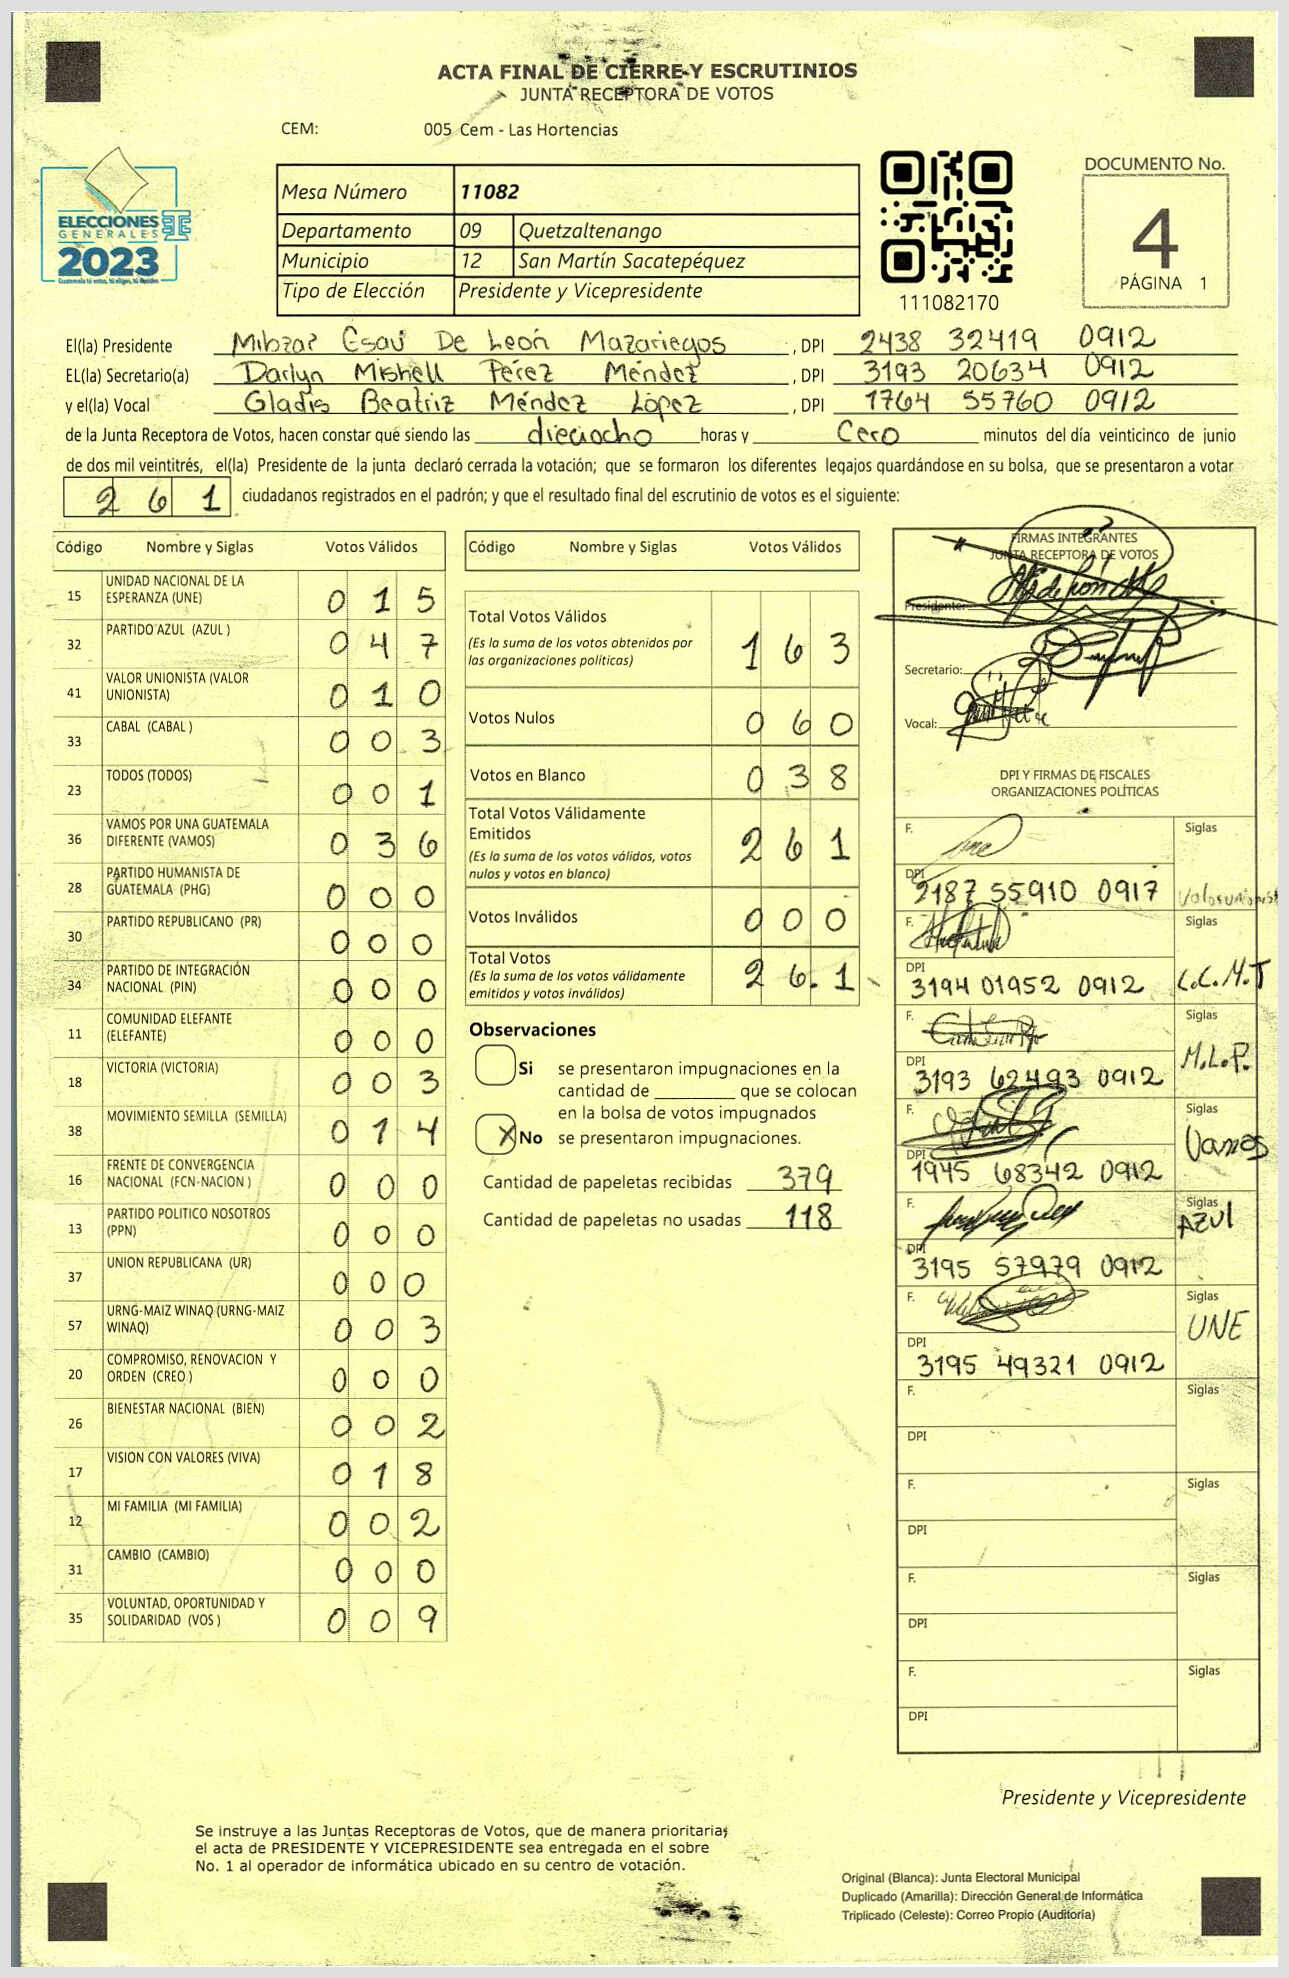 ACTA FINAL DE CIERRE Y ESCRUTINIOS
JUNTA RECEPTORA DE VOTOS
CEM: 005 Cem - Las Hortencias
ELECCIONES
GENERALES
2023
Mesa Número 11082
Departamento 09 Quetzaltenango
Municipio 12 San Martín Sacatepéquez
Tipo de Elección Presidente y Vicepresidente
111082170
DOCUMENTO No.
4
PÁGINA 1
El(la) Presidente Mibzar Esaú De León Mazariegos, DPI 2438 32419 0912
EL(la) Secretario(a) Darlyn Mishell Pérez Méndez, DPI 3193 20634 0912
y el(la) Vocal Gladis Beatriz Méndez López, DPI 1764 55760 0912
de la Junta Receptora de Votos, hacen constar que siendo las dieciocho horas y Cero minutos del día veinticinco de junio
de dos mil veintitrés, el(la) Presidente de la junta declaró cerrada la votación; que se formaron los diferentes legajos guardándose en su bolsa, que se presentaron a votar
261 ciudadanos registrados en el padrón; y que el resultado final del escrutinio de votos es el siguiente:
Código Nombre y Siglas Votos Válidos
15 UNIDAD NACIONAL DE LA
ESPERANZA (UNE) 015
32 PARTIDO AZUL (AZUL ) 047
41 VALOR UNIONISTA (VALOR
UNIONISTA) 010
33 CABAL (CABAL ) 003
23 TODOS (TODOS) 001
36 VAMOS POR UNA GUATEMALA
DIFERENTE (VAMOS) 036
28 PARTIDO HUMANISTA DE
GUATEMALA (PHG) 000
30 PARTIDO REPUBLICANO (PR) 000
34 PARTIDO DE INTEGRACIÓN
NACIONAL (PIN) 000
11 COMUNIDAD ELEFANTE
(ELEFANTE) 000
18 VICTORIA (VICTORIA) 003
38 MOVIMIENTO SEMILLA (SEMILLA) 014
16 FRENTE DE CONVERGENCIA
NACIONAL (FCN-NACION ) 000
13 PARTIDO POLITICO NOSOTROS
(PPN) 000
37 UNION REPUBLICANA (UR) 000
57 URNG-MAIZ WINAQ (URNG-MAIZ
WINAQ) 003
20 COMPROMISO, RENOVACION Y
ORDEN (CREO ) 000
26 BIENESTAR NACIONAL (BIEN) 002
17 VISION CON VALORES (VIVA) 018
12 MI FAMILIA (MI FAMILIA) 002
31 CAMBIO (CAMBIO) 000
35 VOLUNTAD, OPORTUNIDAD Y
SOLIDARIDAD (VOS ) 009
Código Nombre y Siglas Votos Válidos
Total Votos Válidos
(Es la suma de los votos obtenidos por
las organizaciones políticas) 163
Votos Nulos 060
Votos en Blanco 038
Total Votos Válidamente
Emitidos
(Es la suma de los votos válidos, votos
nulos y votos en blanco) 261
Votos Inválidos 000
Total Votos
(Es la suma de los votos válidamente
emitidos y votos inválidos) 261
Observaciones
Si se presentaron impugnaciones en la
cantidad de ________ que se colocan
en la bolsa de votos impugnados
X No se presentaron impugnaciones.
Cantidad de papeletas recibidas 379
Cantidad de papeletas no usadas 118
FIRMAS INTEGRANTES
JUNTA RECEPTORA DE VOTOS
Presidente:
Secretario:
Vocal:
DPI Y FIRMAS DE FISCALES
ORGANIZACIONES POLÍTICAS
F. Siglas
DPI 2187 55910 0917
F. Siglas
DPI 3194 01952 0912 C.C.M.T
F. Siglas
DPI 3193 62493 0912 M.L.P.
F. Siglas
DPI 1945 68342 0912 Vamos
F. Siglas
DPI 3195 57979 0912 AZUl
F. Siglas
DPI 3195 49321 0912 UNE
F. Siglas
DPI
F. Siglas
DPI
F. Siglas
DPI
F. Siglas
DPI
Presidente y Vicepresidente
Se instruye a las Juntas Receptoras de Votos, que de manera prioritaria;
el acta de PRESIDENTE Y VICEPRESIDENTE sea entregada en el sobre
No. 1 al operador de informática ubicado en su centro de votación.
Original (Blanca): Junta Electoral Municipal
Duplicado (Amarilla): Dirección General de Informática
Triplicado (Celeste): Correo Propio (Auditoría)